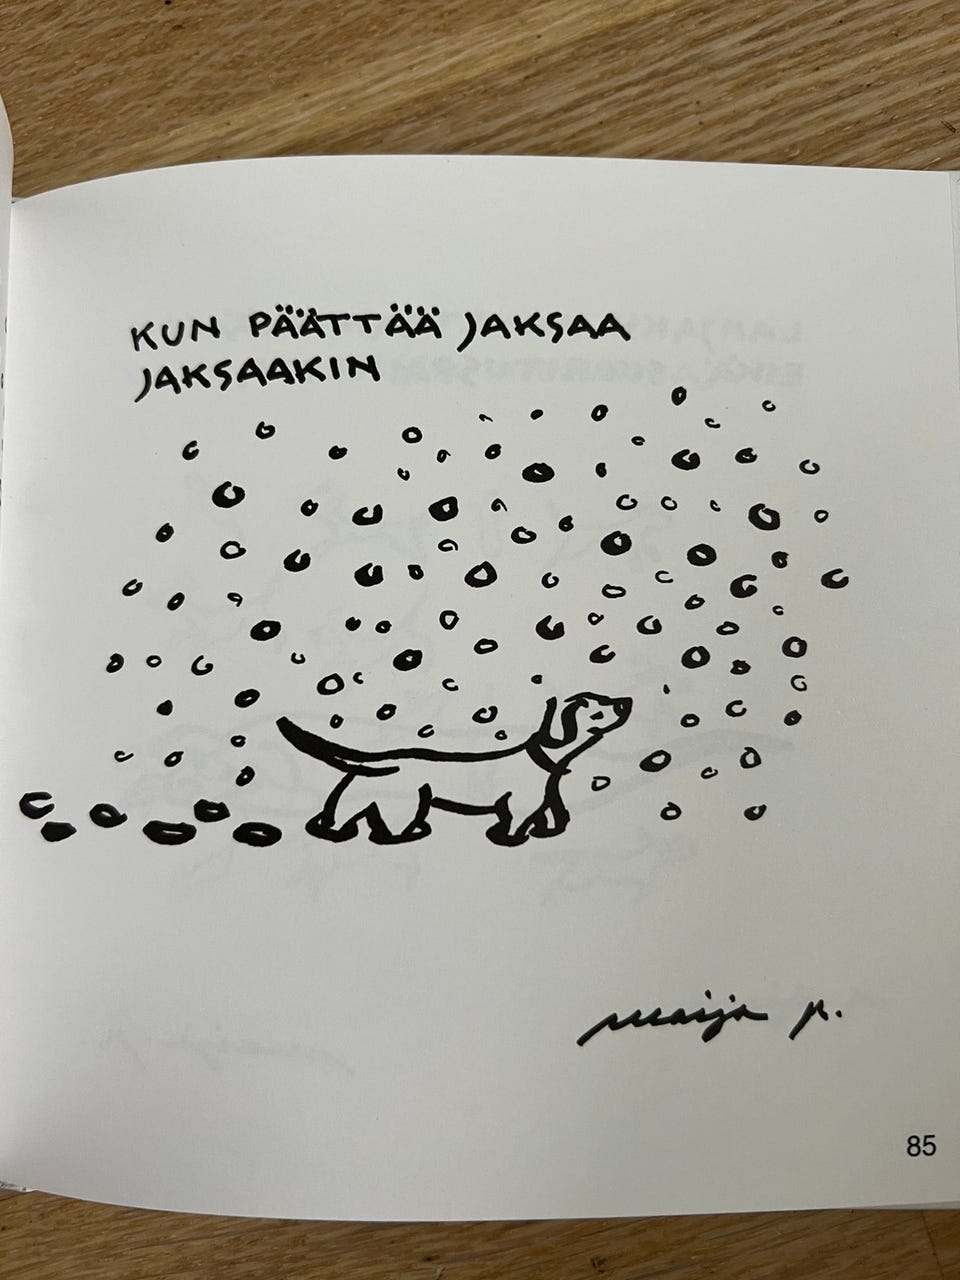 KUN PÄÄTTÄÄ JAKSAA
JAKSAAKIN
maija p.
85